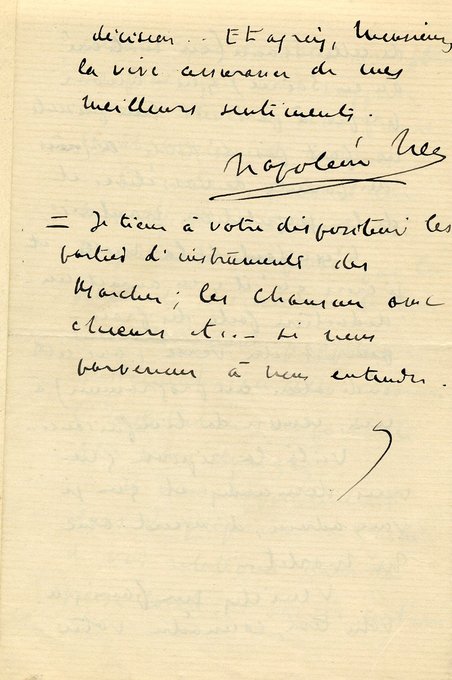 décision.. Et agréez, Monsieur,
la vive assurance de mes
meilleurs sentiments.
Napoléon
= Je tiens à votre disposition les
parties d'instruments des
Marches; les Chansons avec
chœurs &.. – si nous
parvenons à nous entendre.